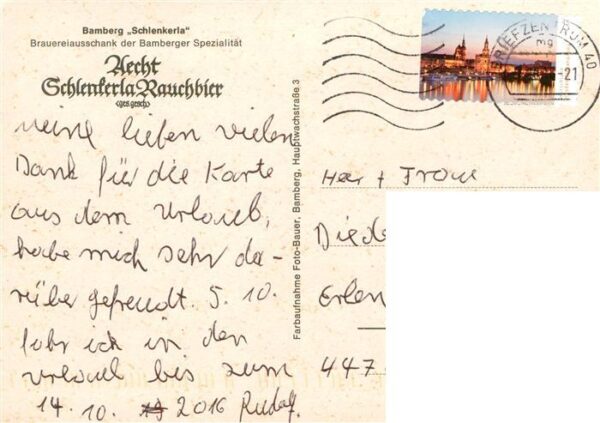 Bamberg „Schlenkerla"
Brauereiausschank der Bamberger Spezialität
Aecht
Schlenkerla Rauchbier
ges. gesch.
meine lieben vielen
Dank für die Karte
aus dem Urlaub,
habe mich sehr da-
rüber gefreudt. 5. 10.
fahr ich in den
Urlaub bis zum
14. 10. 2016 Rudolf.
Farbaufnahme Foto-Bauer, Bamberg, Hauptwachstraße 3
BRIEFZENTRUM 40
mg
-21
Herr + Frau
Diede
Erlen
447